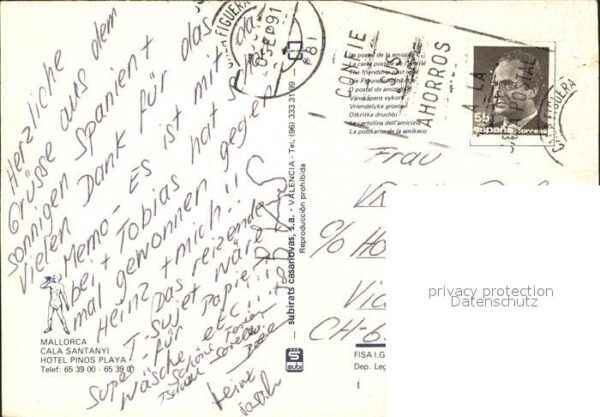 Herzliche
Grüsse aus dem
sonnigen Spanien +
Vielen Dank für das
Memo - Es ist mit da
bei + Tobias hat schon
mal gewonnen gegen
Heinz + mich!!
Das reizende
T-Sujet wäre
super für Papier
wäsche etc!!
Schöne Ferien
Heinz
MALLORCA
CALA SANTANYI
HOTEL PINOS PLAYA
Telef: 65 39 00 - 65 39 0
subirats casanovas, s.a. - VALENCIA - Tel. (96) 333 31 99
Reproducción prohibida
FIGUERA
SEP 91
CONFIE
SUS
AHORROS
A LA
POSTAL
La postal de la amistad
The friendship post card
O postal de amizade
Vänskapens vykort
Vriendelijke groeten
Otkritka druzhbi
La cartolina dell'amicizia
La postkarto de la amikaco
55
España
correos
Frau
c/o Ho
Vic
CH-6
privacy protection
Datenschutz
FISA I.G
Dep. Leg